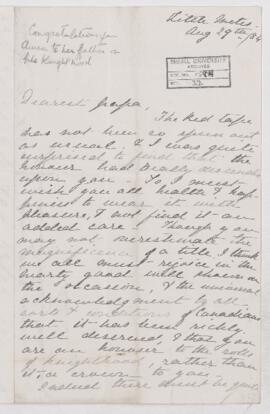 Congratulations from
Anna to her father on
his Knighthood
Little Metis
Aug 29th /84
McGILL UNIVERSITY
ARCHIVES
Dearest papa,
The Red tape
has not been so spun out
as usual, & I was quite
surprised to find that the
honour had really descended
upon you. So I must
wish you all health & hap
piness to wear it with
pleasure, & not find it an
added care. Though you
may not overestimate the
magnificence of a title, I think
we all must rejoice in the
hearty good will shown on
the occasion, & the universal
acknowledgment by all
sorts & conditions of Canadians
that it has been richly
well deserved, & that you
are an honour to the rolls
of knighthood, rather than
it a crown to you.
I asked there must be quite